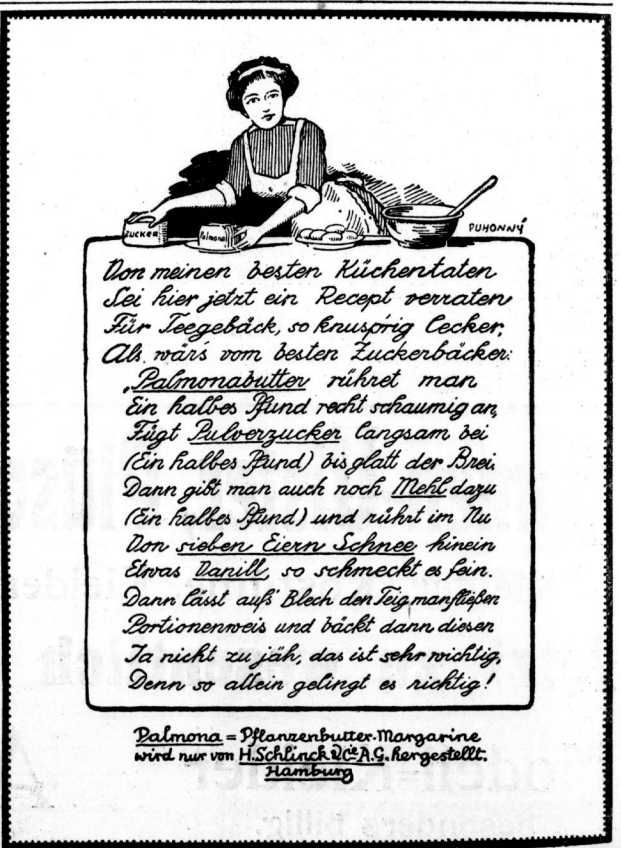 Zucker
Palmona
PUHONNÝ
Von meinen besten Küchentaten
Sei hier jetzt ein Recept verraten
Für Teegebäck, so knusp'rig lecker,
Als wär's vom besten Zuckerbäcker:
„Palmonabutter rühret man
Ein halbes Pfund recht schaumig an,
Fügt Pulverzucker langsam bei
(Ein halbes Pfund) bis glatt der Brei
Dann gibt man auch noch Mehl dazu
(Ein halbes Pfund) und rührt im Nu
Von sieben Eiern Schnee hinein
Etwas Vanill, so schmeckt es fein.
Dann lässt auf's Blech den Teig man fließen
Portionenweis und bäckt dann diesen
Ja nicht zu jäh, das ist sehr wichtig,
Denn so allein gelingt es richtig!
Palmona = Pflanzenbutter-Margarine
wird nur von H. Schlinck & Cie. A.G. hergestellt.
Hamburg